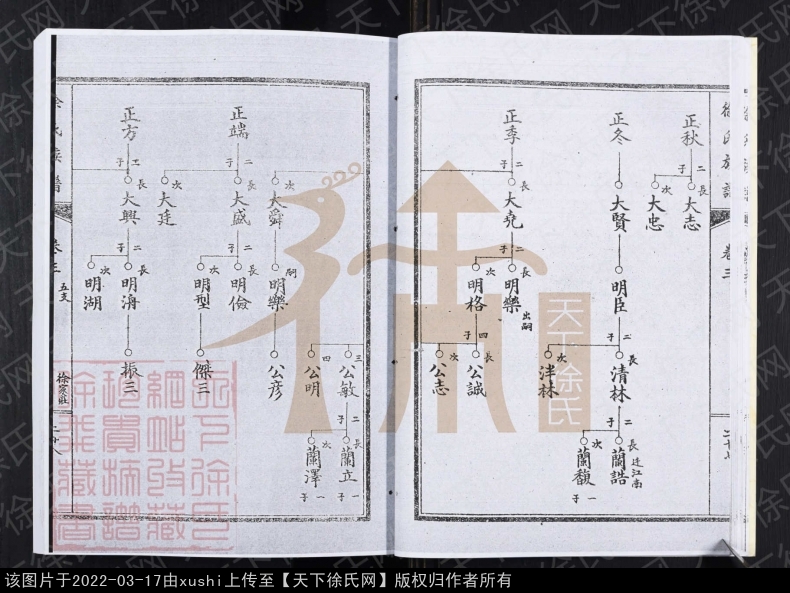 徐氏族譜
卷三
正秋
二子
長
大志
次
大忠
正冬
大賢
明臣
二子
長
清林
次
泮林
二子
長
蘭誥
迁江南
次
蘭馥
一子
正季
二子
長
大堯
次
大舜
二子
長
明樂
出嗣
次
明格
四子
長
公誠
次
公志
三
公敏
四
公明
二子
長
蘭立
一子
次
蘭澤
一子
嗣
明樂
公彦
正端
二子
長
大盛
次
大廷
二子
長
明儉
次
明型
傑三
正方
長
大興
二子
長
明海
次
明湖
振三
徐氏族譜
卷三
五支
徐家莊
二十八
天下徐氏
天下徐氏网
该图片于2022-03-17由xushi上传至【天下徐氏网】版权归作者所有